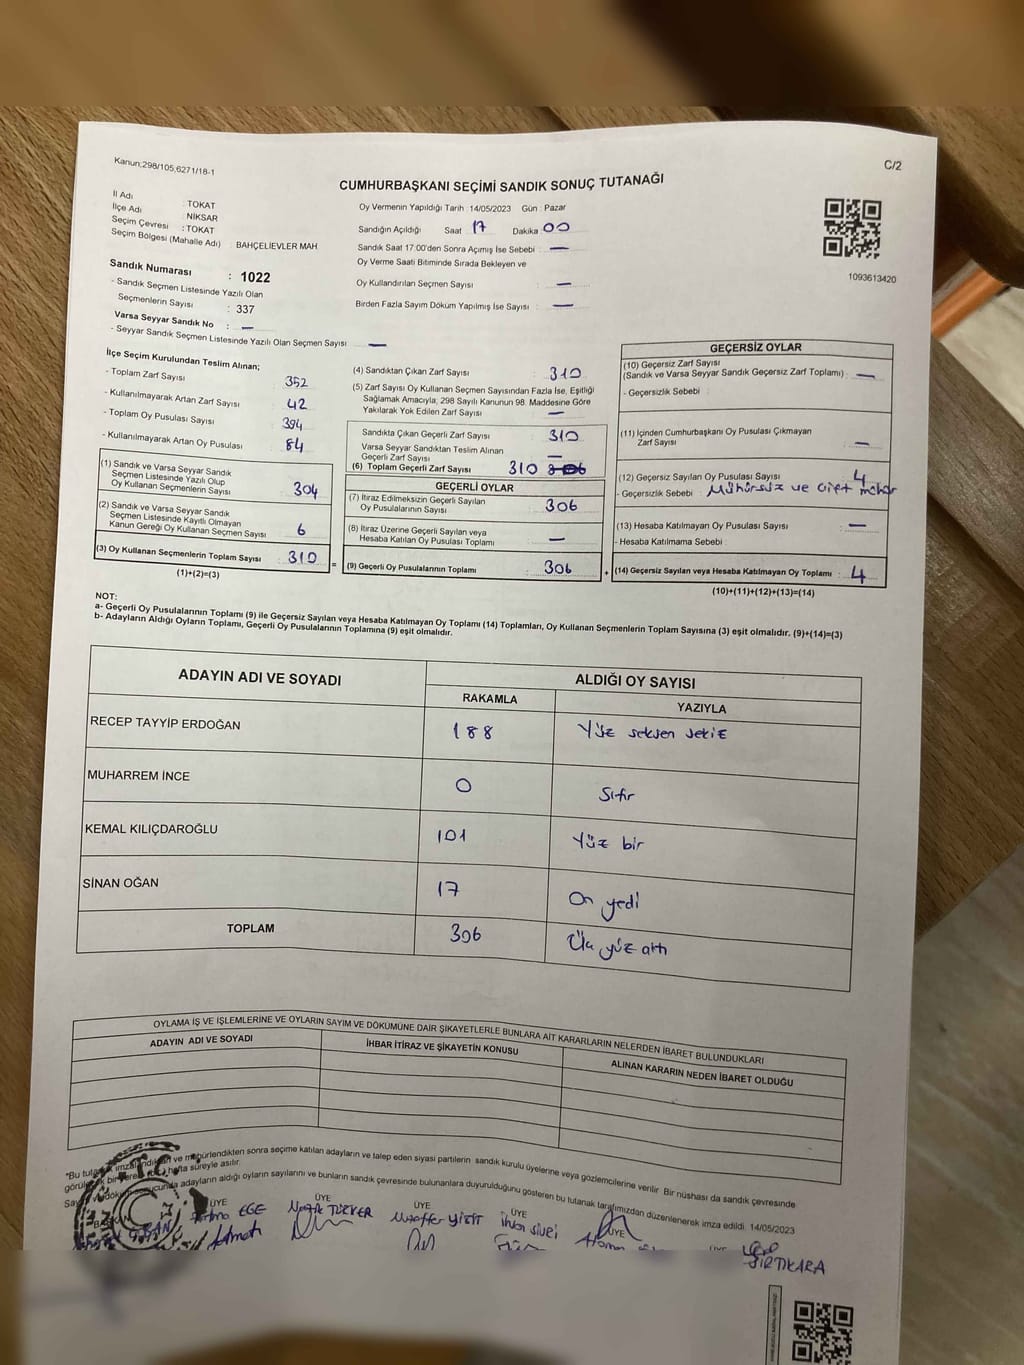 Kanun;298/105,6271/18-1
C/2
CUMHURBAŞKANI SEÇİMİ SANDIK SONUÇ TUTANAĞI
İl Adı : TOKAT
İlçe Adı : NİKSAR
Seçim Çevresi : TOKAT
Seçim Bölgesi (Mahalle Adı) : BAHÇELİEVLER MAH.
Oy Vermenin Yapıldığı Tarih : 14/05/2023 Gün : Pazar
Sandığın Açıldığı Saat 17 Dakika 00
Sandık Saat 17:00'den Sonra Açılmış İse Sebebi : —
Oy Verme Saati Bitiminde Sırada Bekleyen ve
Oy Kullandırılan Seçmen Sayısı : —
Birden Fazla Sayım Döküm Yapılmış İse Sayısı : —
1093613420
Sandık Numarası : 1022
- Sandık Seçmen Listesinde Yazılı Olan
Seçmenlerin Sayısı : 337
Varsa Seyyar Sandık No : —
- Seyyar Sandık Seçmen Listesinde Yazılı Olan Seçmen Sayısı : —
İlçe Seçim Kurulundan Teslim Alınan;
- Toplam Zarf Sayısı 352
- Kullanılmayarak Artan Zarf Sayısı 42
- Toplam Oy Pusulası Sayısı 394
- Kullanılmayarak Artan Oy Pusulası 84
(1) Sandık ve Varsa Seyyar Sandık
Seçmen Listesinde Yazılı Olup
Oy Kullanan Seçmenlerin Sayısı 304
(2) Sandık ve Varsa Seyyar Sandık
Seçmen Listesinde Kayıtlı Olmayan
Kanun Gereği Oy Kullanan Seçmen Sayısı 6
(3) Oy Kullanan Seçmenlerin Toplam Sayısı 310
(1)+(2)=(3)
(4) Sandıktan Çıkan Zarf Sayısı : 310
(5) Zarf Sayısı Oy Kullanan Seçmen Sayısından Fazla İse, Eşitliği
Sağlamak Amacıyla; 298 Sayılı Kanunun 98. Maddesine Göre
Yakılarak Yok Edilen Zarf Sayısı : —
Sandıkta Çıkan Geçerli Zarf Sayısı : 310
Varsa Seyyar Sandıktan Teslim Alınan
Geçerli Zarf Sayısı —
(6) Toplam Geçerli Zarf Sayısı 310
GEÇERLİ OYLAR
(7) İtiraz Edilmeksizin Geçerli Sayılan
Oy Pusulalarının Sayısı : 306
(8) İtiraz Üzerine Geçerli Sayılan veya
Hesaba Katılan Oy Pusulası Toplamı —
(9) Geçerli Oy Pusulalarının Toplamı 306
GEÇERSİZ OYLAR
(10) Geçersiz Zarf Sayısı
(Sandık ve Varsa Seyyar Sandık Geçersiz Zarf Toplamı) : —
- Geçersizlik Sebebi :
(11) İçinden Cumhurbaşkanı Oy Pusulası Çıkmayan
Zarf Sayısı —
(12) Geçersiz Sayılan Oy Pusulası Sayısı 4
- Geçersizlik Sebebi : Mühürsüz ve Çift mühür
(13) Hesaba Katılmayan Oy Pusulası Sayısı : —
- Hesaba Katılmama Sebebi :
(14) Geçersiz Sayılan veya Hesaba Katılmayan Oy Toplamı : 4
(10)+(11)+(12)+(13)=(14)
NOT:
a- Geçerli Oy Pusulalarının Toplamı (9) ile Geçersiz Sayılan veya Hesaba Katılmayan Oy Toplamı (14) Toplamları, Oy Kullanan Seçmenlerin Toplam Sayısına (3) eşit olmalıdır. (9)+(14)=(3)
b- Adayların Aldığı Oyların Toplamı, Geçerli Oy Pusulalarının Toplamına (9) eşit olmalıdır.
ADAYIN ADI VE SOYADI ALDIĞI OY SAYISI
RAKAMLA YAZIYLA
RECEP TAYYİP ERDOĞAN 188 Yüz seksen sekiz
MUHARREM İNCE 0 Sıfır
KEMAL KILIÇDAROĞLU 101 Yüz bir
SİNAN OĞAN 17 On yedi
TOPLAM 306 Üç yüz altı
OYLAMA İŞ VE İŞLEMLERİNE VE OYLARIN SAYIM VE DÖKÜMÜNE DAİR ŞİKAYETLERLE BUNLARA AİT KARARLARIN NELERDEN İBARET BULUNDUKLARI
ADAYIN ADI VE SOYADI İHBAR İTİRAZ VE ŞİKAYETİN KONUSU ALINAN KARARIN NEDEN İBARET OLDUĞU
*Bu tutanak imzalandıktan ve mühürlendikten sonra seçime katılan adayların ve talep eden siyasi partilerin sandık kurulu üyelerine veya gözlemcilerine verilir. Bir nüshası da sandık çevresinde
bir hafta süreyle asılır.
adayların aldığı oyların sayılarını ve bunların sandık çevresinde bulunanlara duyurulduğunu gösteren bu tutanak tarafımızdan düzenlenerek imza edildi. 14/05/2023
ÜYE ÜYE ÜYE ÜYE ÜYE
EGE TÜRKER Muzaffer YİĞİT SIRTIKARA